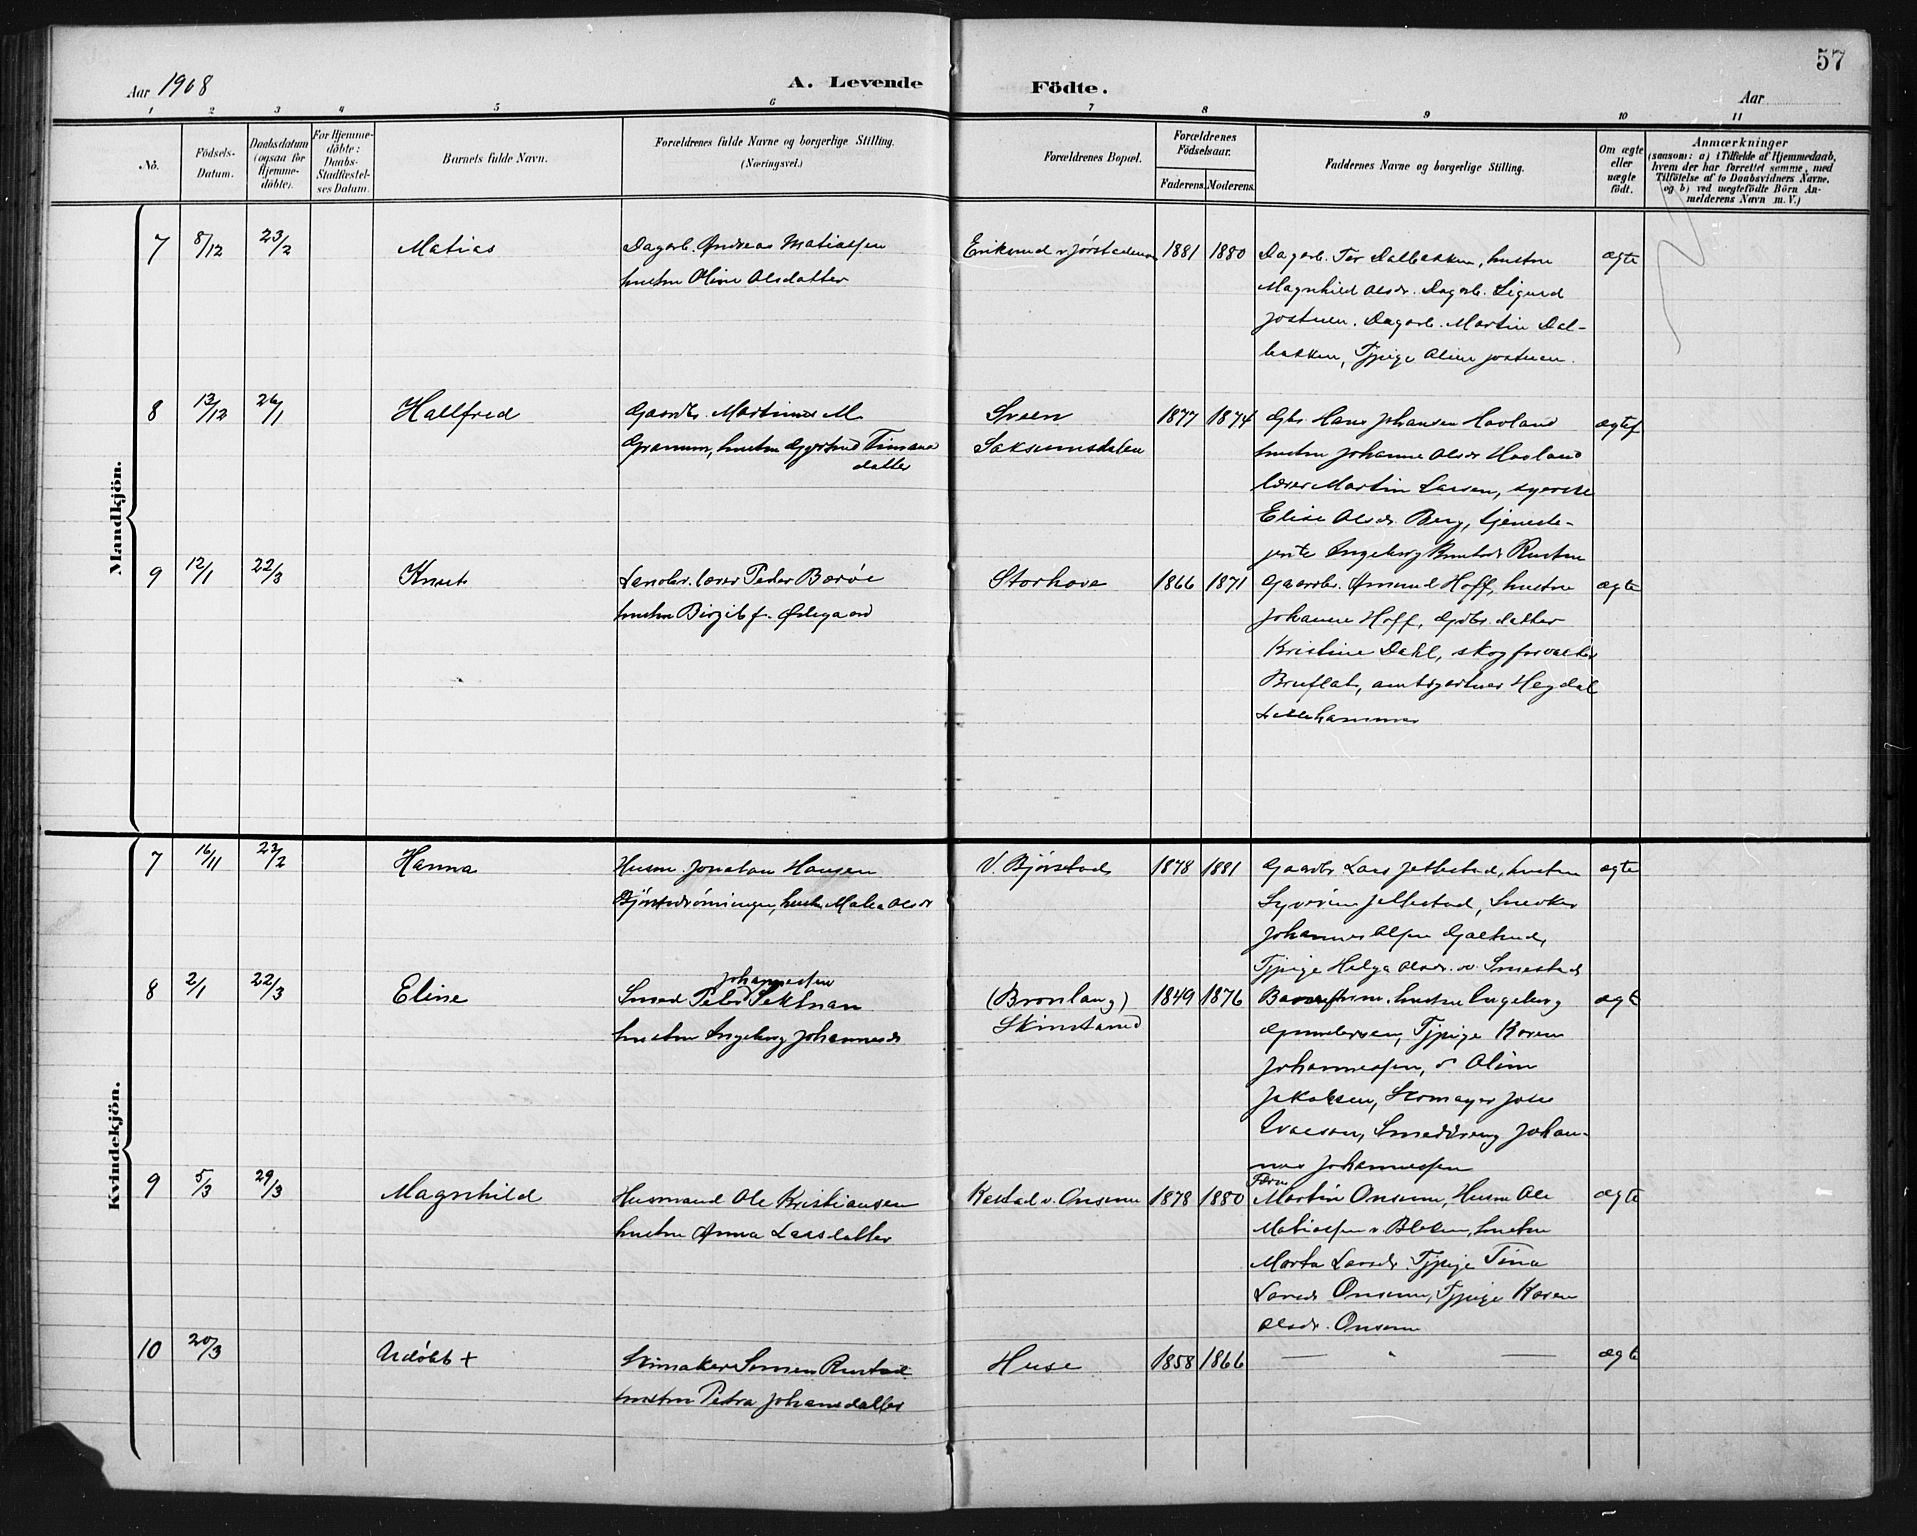 57
Aar 1908
A. Levende Födte.
Aar
1 2 3 4 5 6 7 8 9 10 11
No.
Födsels-
Datum.
Daabsdatum
(ogsaa for
Hjemme-
döbte).
For Hjemme-
döbte:
Daabs-
Stadfæstel-
ses Datum.
Barnets fulde Navn.
Forældrenes fulde Navne og borgerlige Stilling.
(Næringsvei.)
Forældrenes Bopæl.
Forældrenes
Födselsaar.
Faderens.
Moderens.
Faddernes Navne og borgerlige Stilling.
Om ægte
eller
uægte
födt.
Anmærkninger
(saasom: a) i Tilfælde af Hjemmedaab,
hvem der har forrettet samme, med
Tilföielse af to Daabsvidners Navne,
og b) ved uægtefödte Börn An-
melderens Navn m. V.)
Mandkjön.
7 8/12 23/2 Matias
Dagarb. Andreas Matiassen
hustru Oline Olsdatter
1881 1880
Dagarb. Per Dalbakken, hustru
Magnhild Olsdr. Dagarb. Sigurd
Jostuen. Dagarb. Martin Dal-
bakken, Tjpige Oline Jostuen.
ægte
8 13/12 26/1 Hallfred
Gaardbr. Martinus M.
Granum, hustru Gjertrud
datter
Sveen
Saksumsdalen
1877 1874
Gbr. Hans Johansen Havland
hustru Johanne Olsdr Havland
lærer Martin Larsen, syerske
Elise Olsdr. Berg, tjeneste-
jente Ingeborg Rusten
9 12/1 22/3 Knut
Landbr. lærer Peder Berøe
hustru Birgit f. Ødegaard
Storhove
1866 1871
Gaardbr. Amund Hoff, hustru
Johanne Hoff, Gdbr. datter
Kristine Dahl, skogforvalter
Bruflat, amtsgartner Hegdal
Lillehammer
ægte
Kvindekjön.
7 16/11 23/2 Hanna
Husm. Jonatan Hansen
hustru Malea Olsdr
V. Bjørstad
1878 1881
Gaardbr Lars Jettestad, hustru
Jettestad, Snedker
Johannes Olsen
Tjpige Helga Olsdr. v. Smestad
ægte
8 2/1 22/3 Eline
Johannessen
Smed Peder
hustru Ingeborg Johannesdr
1849 1876
hustru Ingeborg
Gundersen, Tjpige Karen
Johannessen, Oline
Jakobsen, Skomager
Smeddreng Johan-
nes Johannessen
ægte
9 5/3 29/3 Magnhild
Husmand Ole Kristiansen
hustru Anna Larsdatter
1878 1880
Martin Onsum, Husm Ole
Matiassen v. Bleken, hustru
Marta Larsdr. Tjpige Tina
Larsdr Onsum, Tjpige Karen
Olsdr. Onsum
ægte
10 20/3 Udøbt +
Skomaker Rustad
hustru Petra Johansdatter
Huse
1858 1866
— " —
ægte